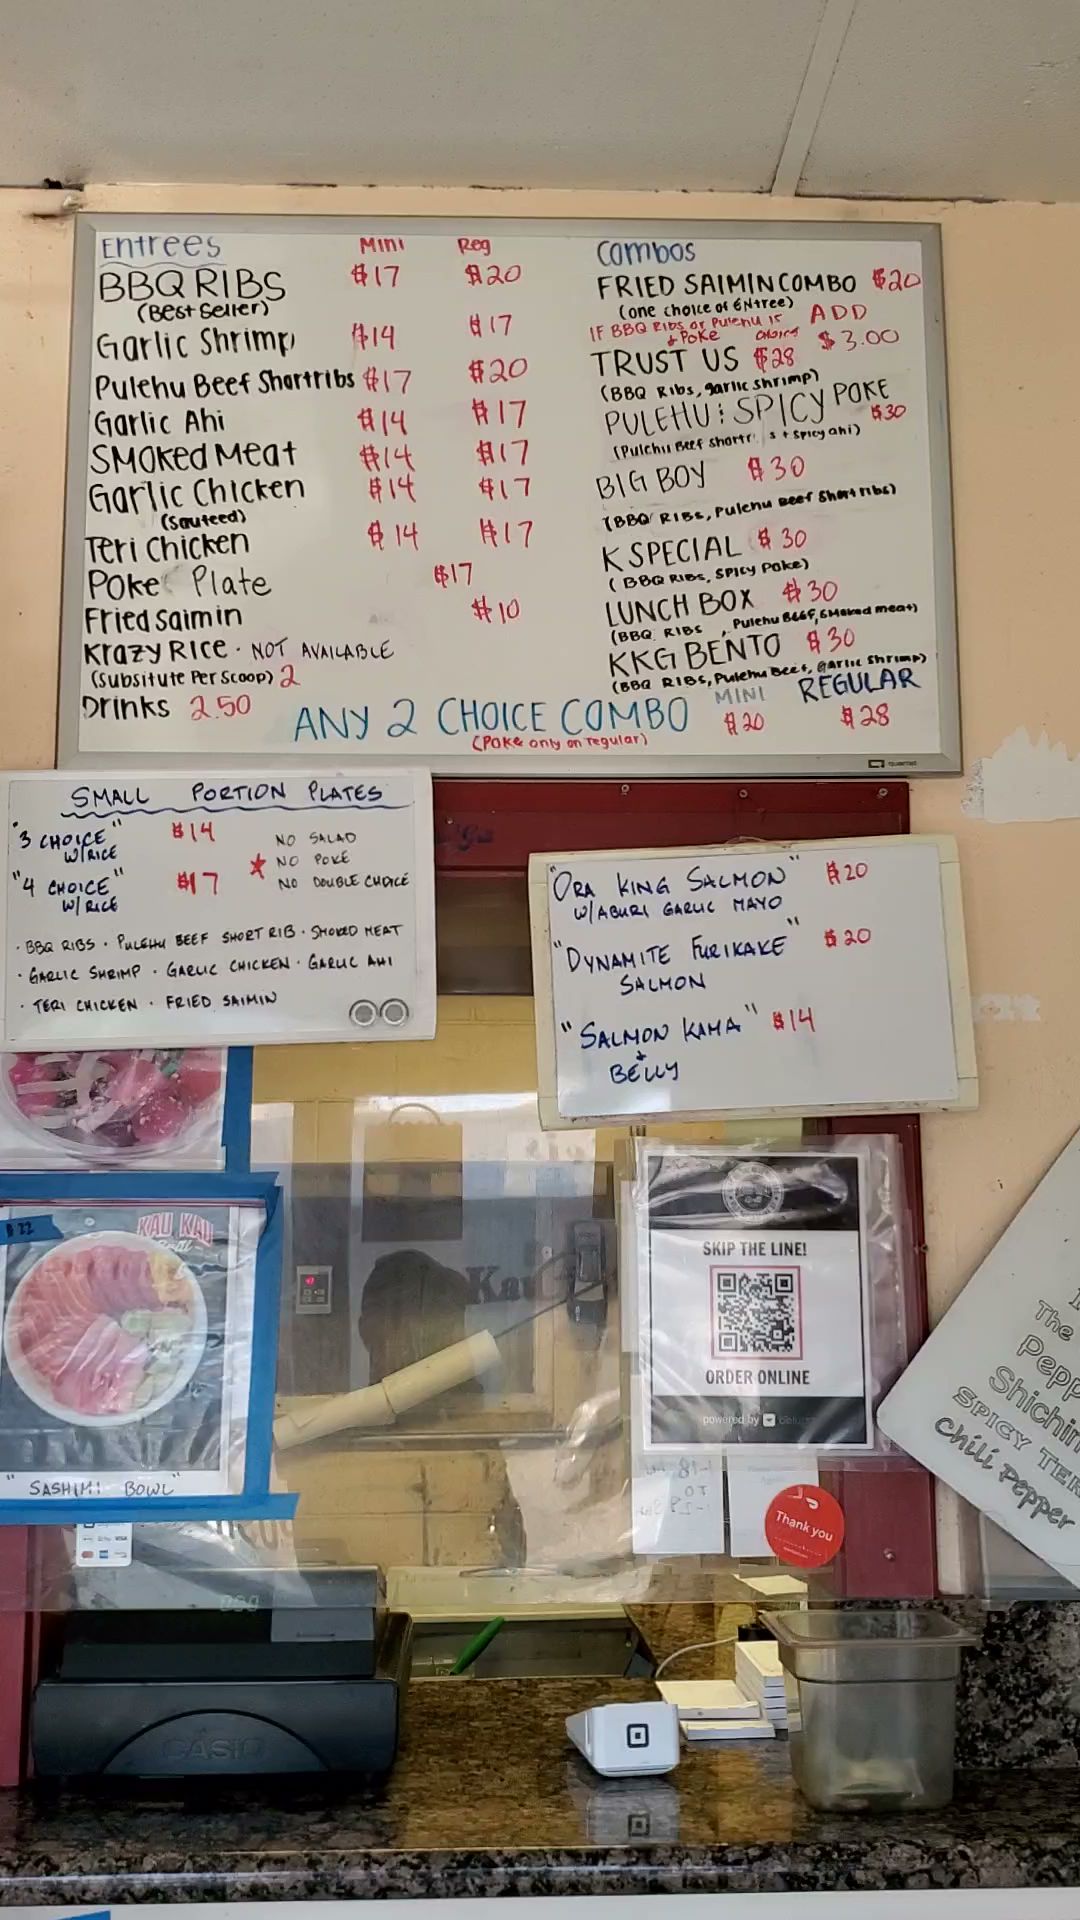 Entrees Mini Reg
BBQ RIBS $17 $20
(Best Seller)
Garlic Shrimp $14 $17
Pulehu Beef Shortribs $17 $20
Garlic Ahi $14 $17
SMOKED MEAT $14 $17
Garlic Chicken $14 $17
(Sauteed)
Teri Chicken $14 $17
Poke Plate $17
Fried Saimin $10
Krazy Rice · NOT AVAILABLE
(Subsitute Per Scoop) 2
Drinks 2.50
Combos
FRIED SAIMIN COMBO $20
(one choice of ENtree)
IF BBQ Ribs or Pulehu is ADD
+ Poke choice $3.00
TRUST US $28
(BBQ Ribs, garlic shrimp)
PULEHU : SPICY POKE
$30
(Pulehu Beef Shortr s + Spicy ahi)
BIG BOY $30
(BBQ RIBS, Pulehu Beef Short ribs)
K SPECIAL $30
(BBQ RIBS, SPICY POKE)
LUNCH BOX $30
(BBQ RIBS , Pulehu BEEF, SMOKED meat)
KKG BENTO $30
(BBQ RIBS, Pulehu Beef, Garlic Shrimp)
ANY 2 CHOICE COMBO MINI REGULAR
$20 $28
(POKE only on regular)
quartet
SMALL PORTION PLATES
"3 CHOICE" $14
W/RICE
"4 CHOICE" $17
W/RICE
NO SALAD
NO POKE
NO DOUBLE CHOICE
· BBQ RIBS · PULEHU BEEF SHORT RIB · SMOKED MEAT
· GARLIC SHRIMP · GARLIC CHICKEN · GARLIC AHI
· TERI CHICKEN · FRIED SAIMIN
"ORA KING SALMON" $20
W/ABURI GARLIC MAYO
"DYNAMITE FURIKAKE" $20
SALMON
"SALMON KAMA" $14
+
BELLY
$22
KAU KAU
"SASHIMI BOWL"
Kau
SKIP THE LINE!
ORDER ONLINE
powered by
The
Pepp
Shichim
SPICY TER
Chili Pepper
Thank you
CASIO